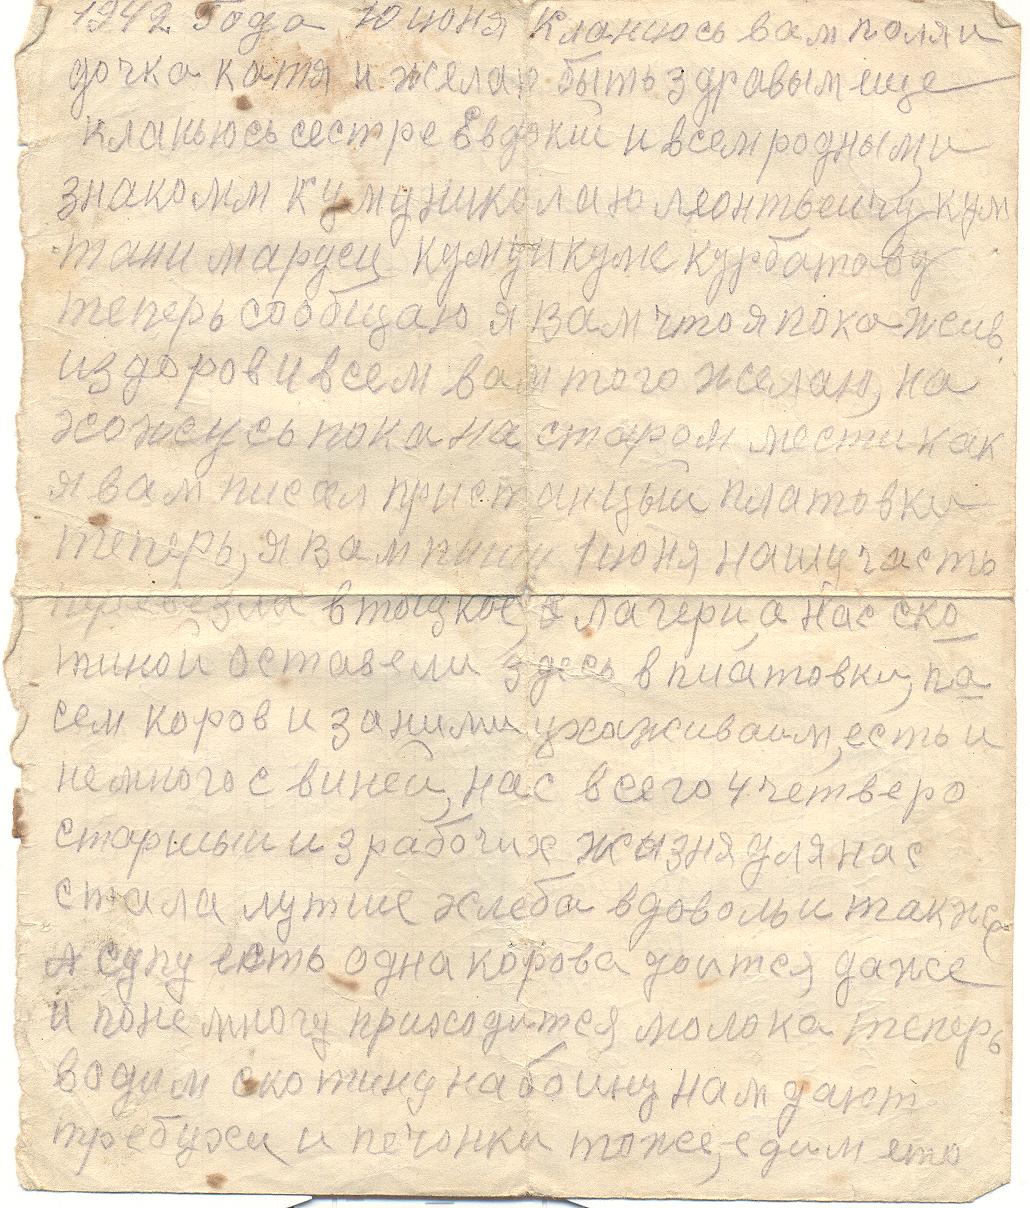 1942 Года 10 июня Кланиюсь вам поля и
дочка катя и желаю быть здравым еще
кланьюсь сестре Евдокии и всем родным и
знакомм куму николаю леонтьеичу кум
тани маруси куму и куме курбатову
теперь сообщаю я вам что я пока жив
и здоров и всем вам того желаю, на
хожусь пока на старом мести как
я вам писал при станцыи платовки
теперь, я вам пишу 1 июня нашу часть
перевезли в тоцкое, в лагери а нас ско
тиной оставели здесь в платовки, па
сем коров и за ними ухаживаим, есть и
немного свиней, нас всего 4 четверо
старшыи из рабочих жызня для нас
стала лутше хлеба вдоволь и также
и супу есть одна корова доится, даже
и понемногу приходится молока теперь
водим скотину на боину нам дают
требухи и печонки тоже, едим ето